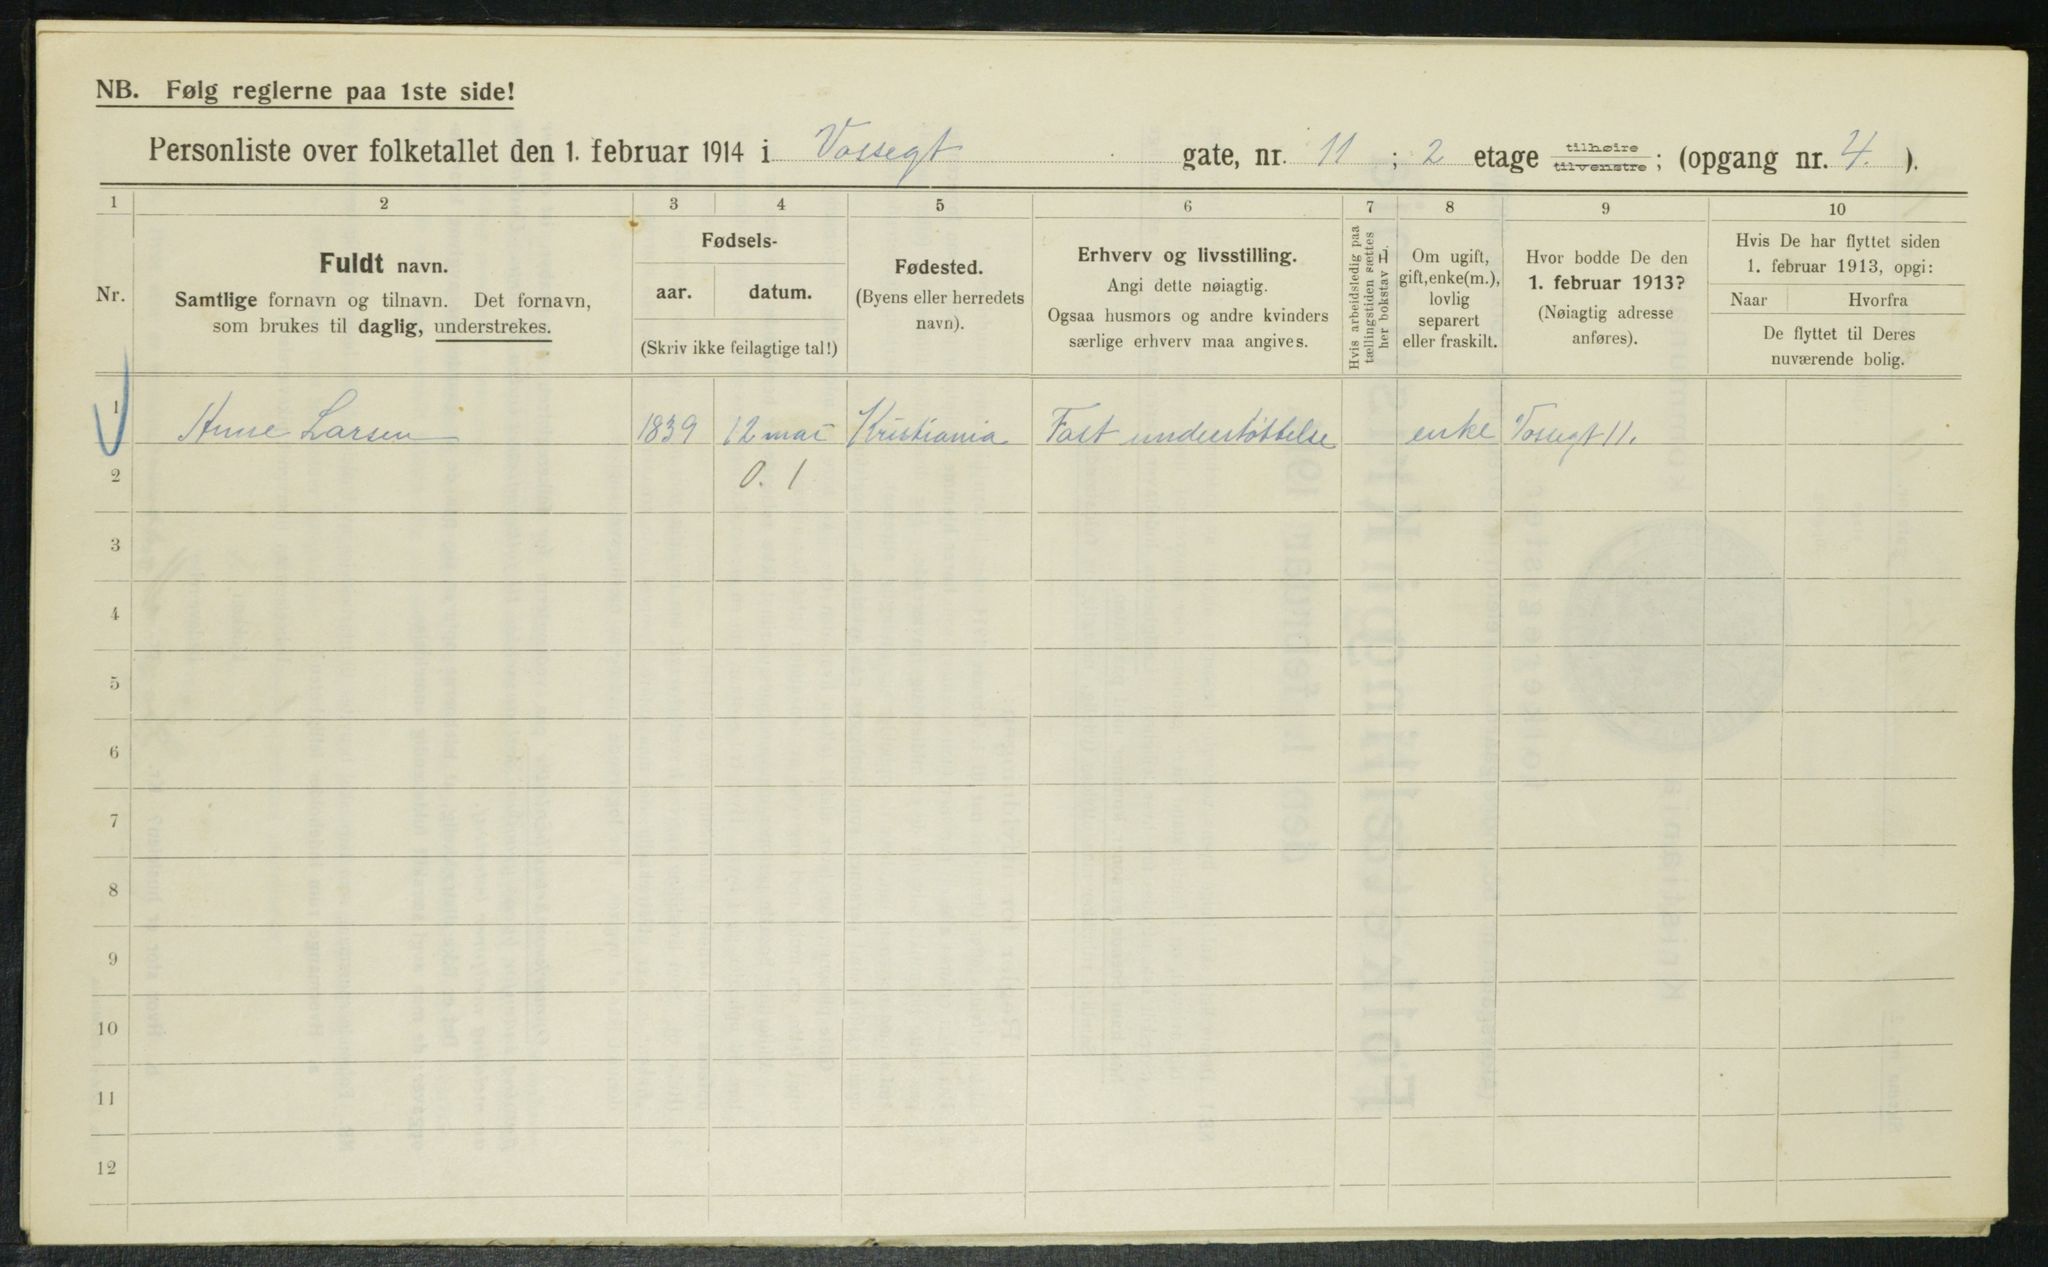 NB. Følg reglerne paa 1ste side!
Personliste over folketallet den 1. februar 1914 i Vossegt gate, nr. 11 ; 2 etage tilhøire tilvenstre ; (opgang nr. 4. ).
1 2 3 4 5 6 7 8 9 10
Nr.
Fuldt navn.
Samtlige fornavn og tilnavn. Det fornavn,
som brukes til daglig, understrekes.
Fødsels-
aar. datum.
(Skriv ikke feilagtige tal!)
Fødested.
(Byens eller herredets
navn).
Erhverv og livsstilling.
Angi dette nøiagtig.
Ogsaa husmors og andre kvinders
særlige erhverv maa angives.
Hvis arbeidsledig paa
tællingstiden sættes
her bokstav L.
Om ugift,
gift, enke(m.),
lovlig
separert
eller fraskilt.
Hvor bodde De den
1. februar 1913?
(Nøiagtig adresse
anføres).
Hvis De har flyttet siden
1. februar 1913, opgi:
Naar Hvorfra
De flyttet til Deres
nuværende bolig.
1 Anne Larsen 1839 12 mai Kristiania Fast understøttelse enke Vossegt 11.
2 0. 1
3
4
5
6
7
8
9
10
11
12